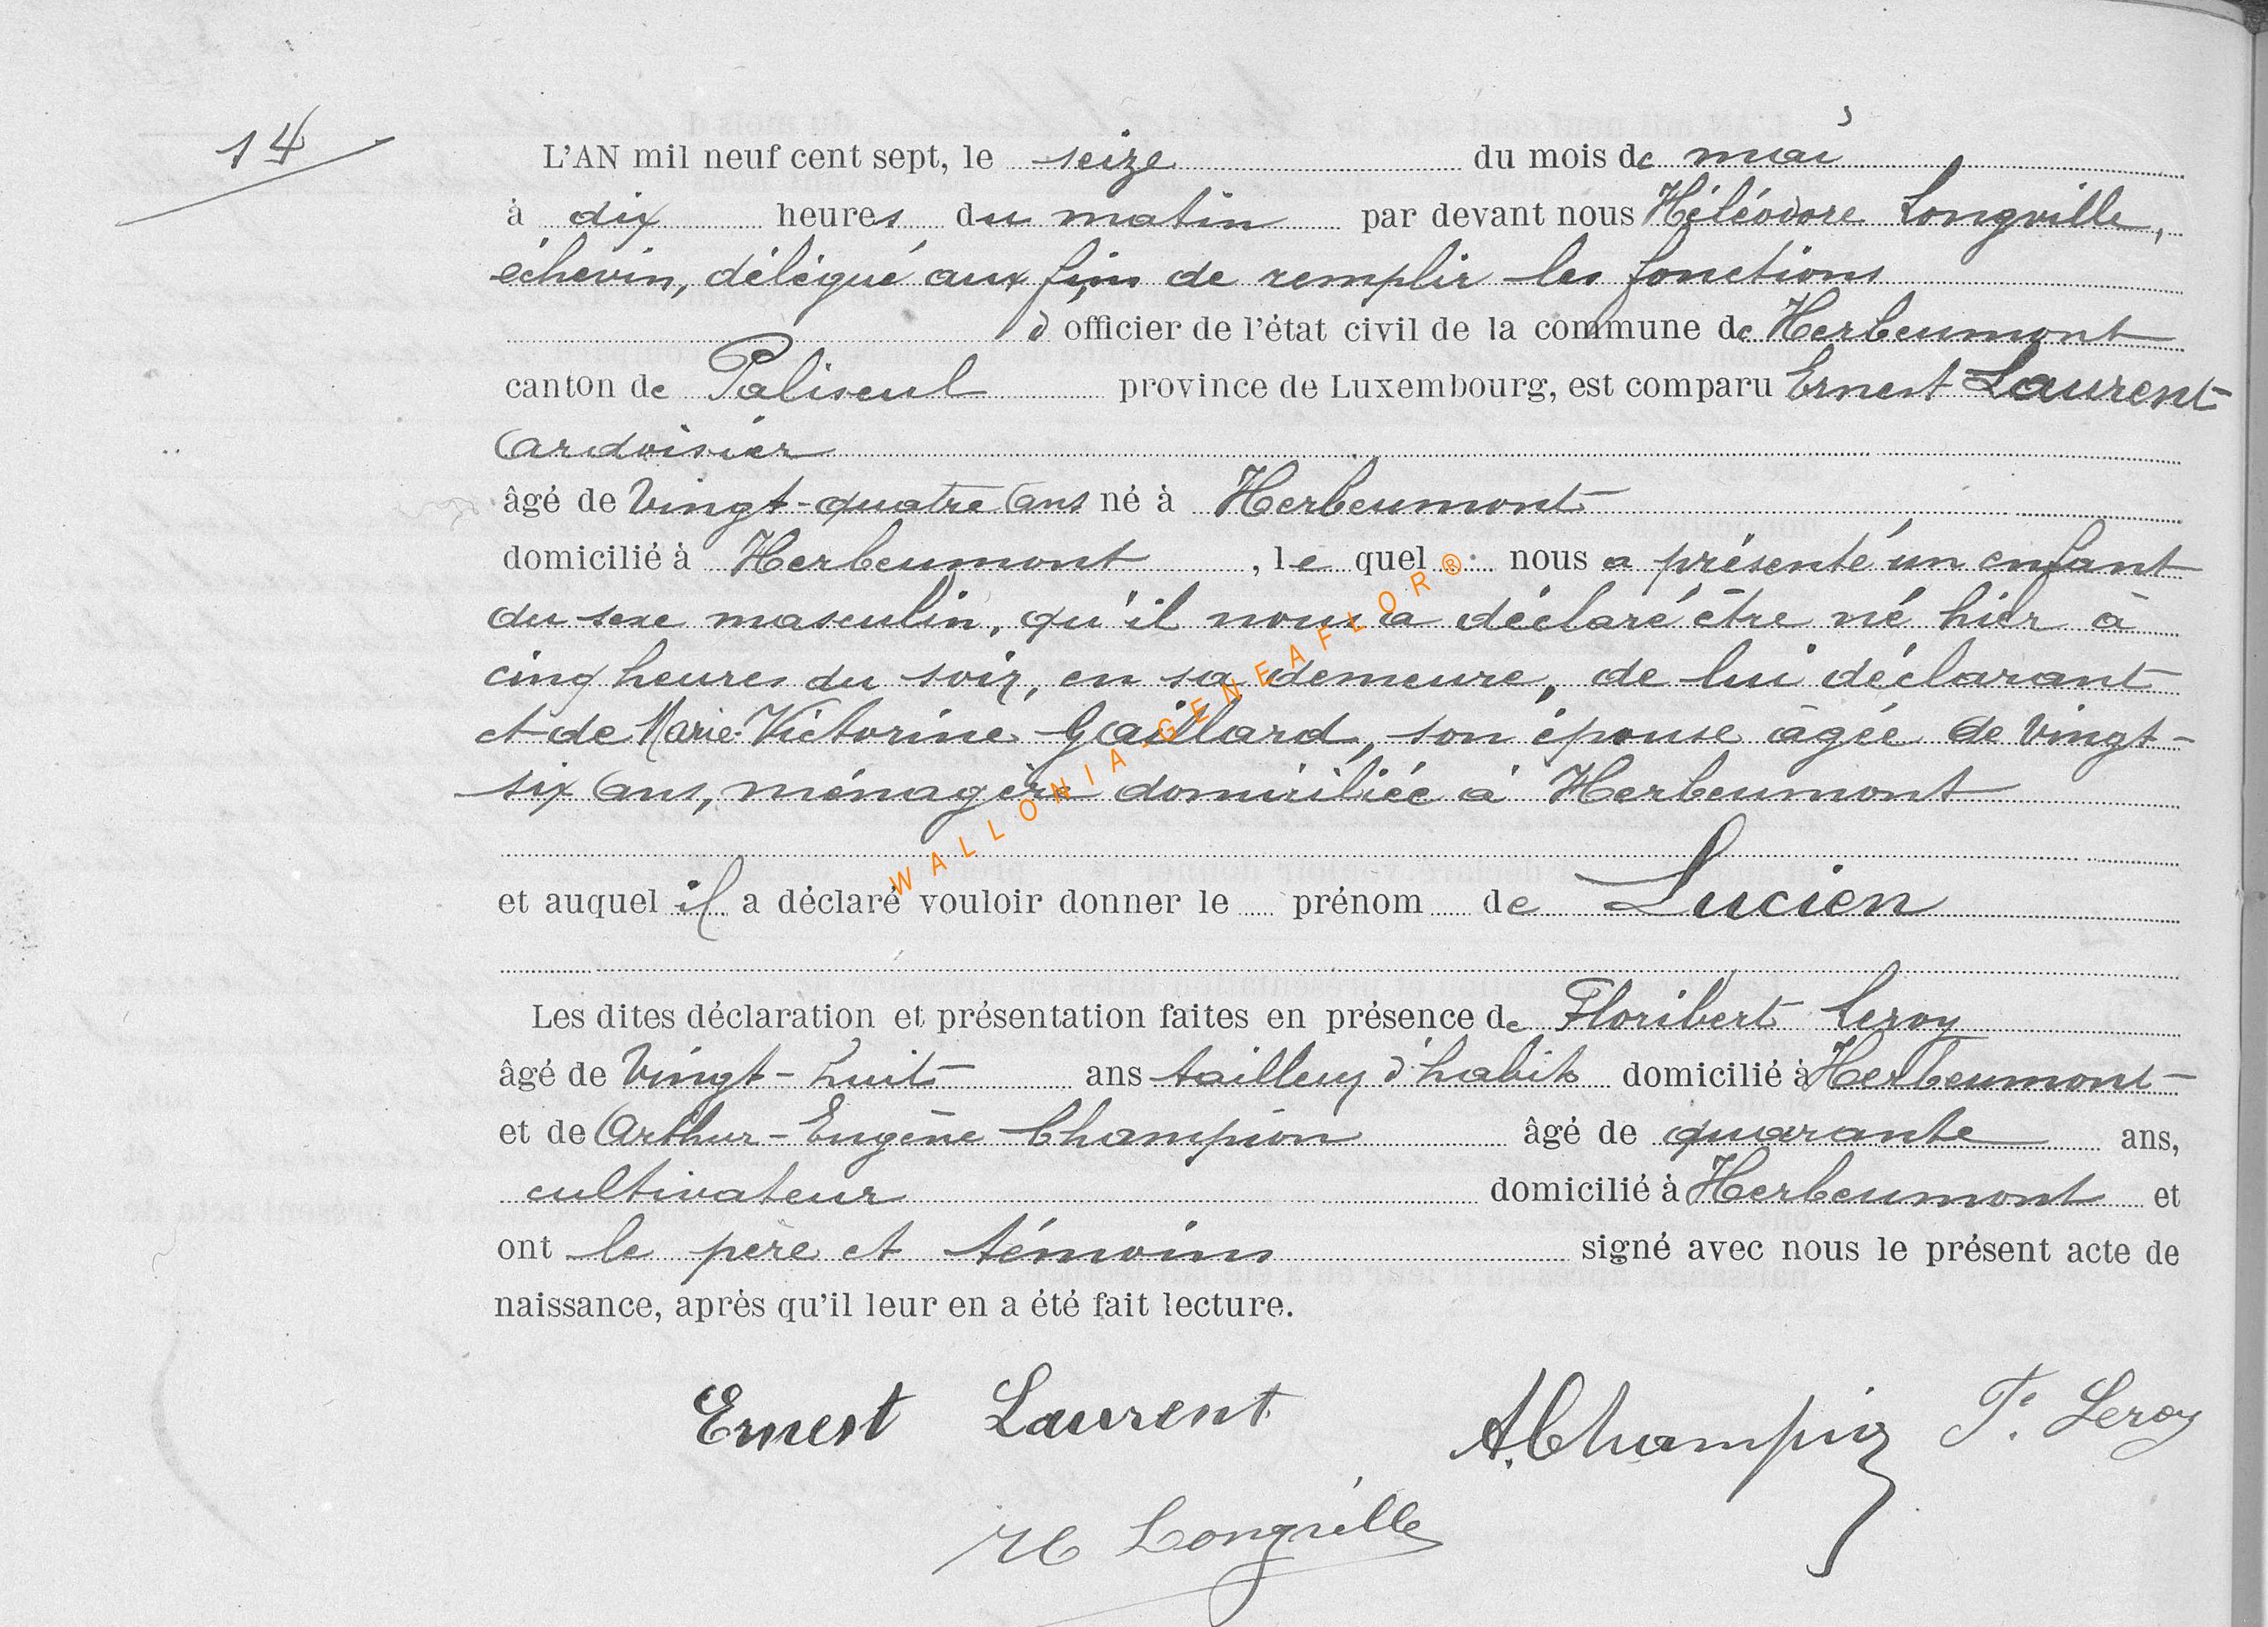 14
L'AN mil neuf cent sept, le seize du mois de mai
à dix heures du matin par devant nous Héléodore Longville,
échevin, délégué aux fins de remplir les fonctions
d'officier de l'état civil de la commune de Herbeumont
canton de Paliseul province de Luxembourg, est comparu Ernest Laurent
ardoisier
âgé de vingt-quatre ans né à Herbeumont
domicilié à Herbeumont, le quel nous a présenté un enfant
du sexe masculin, qu'il nous a déclaré être né hier à
cinq heures du soir, en sa demeure, de lui déclarant
et de Marie-Victorine Gaillard, son épouse âgée de vingt-
six ans, ménagère domiciliée à Herbeumont
et auquel il a déclaré vouloir donner le prénom de Lucien
Les dites déclaration et présentation faites en présence de Floribert Leroy
âgé de vingt-huit ans tailleur d'habits domicilié à Herbeumont
et de Arthur-Eugène Champion âgé de quarante ans,
cultivateur domicilié à Herbeumont et
ont le père et témoins signé avec nous le présent acte de
naissance, après qu'il leur en a été fait lecture.
Ernest Laurent A. Champion F. Leroy
H Longville
WALLONIA-GENEAFLOR®